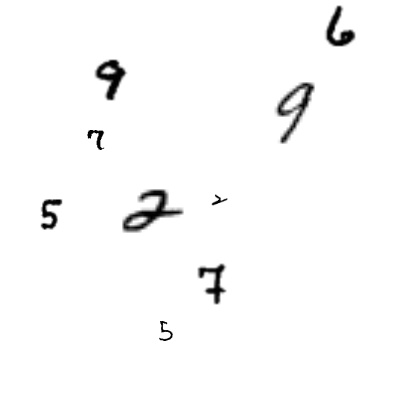 6
9
9
7
5 2 2
7
5